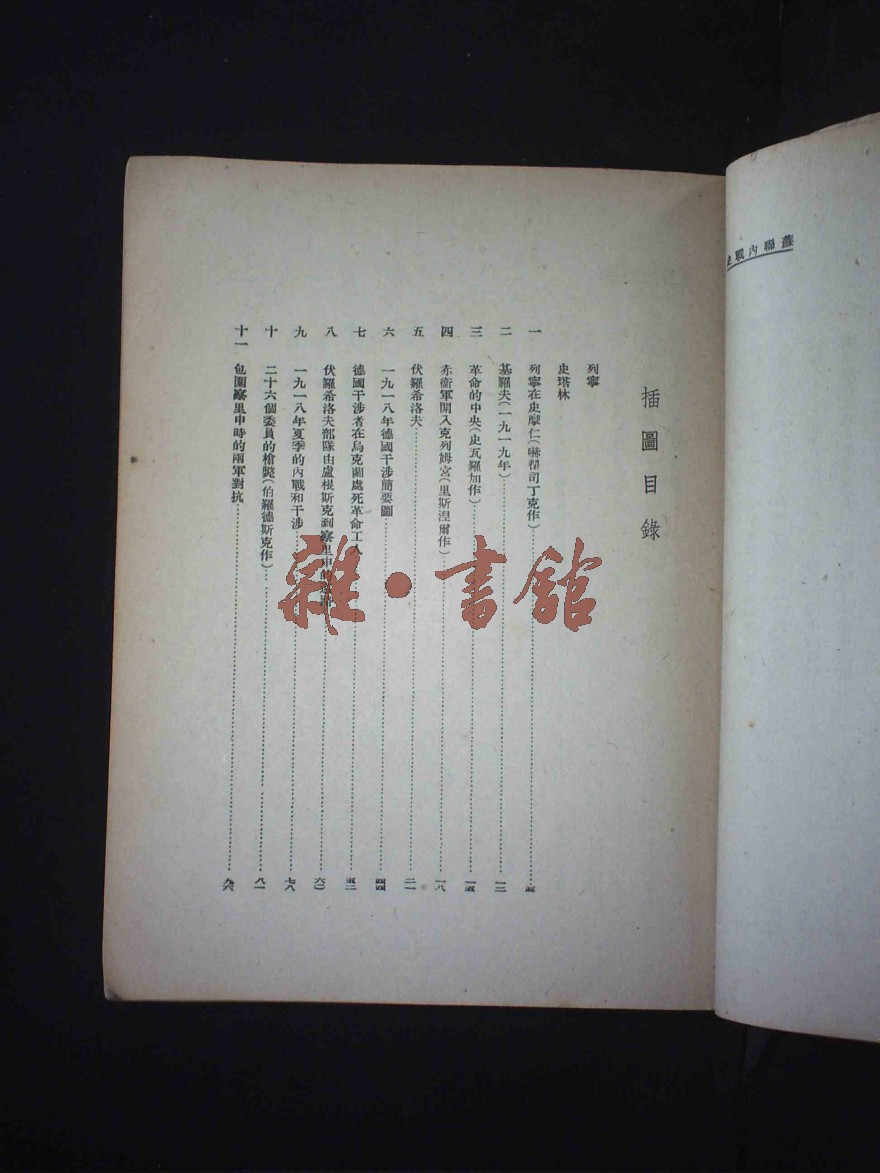 蘇聯內戰史
插圖目錄
列寧
史塔林
一 列寧在史摩仁(嚇磊司丁克作)……五
二 基羅夫(一九一九年)……一三
三 革命的中央(史瓦羅加作)……一五
四 赤衞軍開入克列姆宮(里斯湼爾作)……一八
五 伏羅希洛夫……二一
六 一九一八年德國干涉簡要圖……四四
七 德國干涉者在烏克蘭處死革命工人……五二
八 伏羅希洛夫部隊由盧根斯克到察里申的……六〇
九 一九一八年夏季的內戰和干涉……七八
十 二十六個委員的槍斃(伯羅德斯克作)……八一
十一 包圍察里申時的兩軍對抗……九六
雜·書館